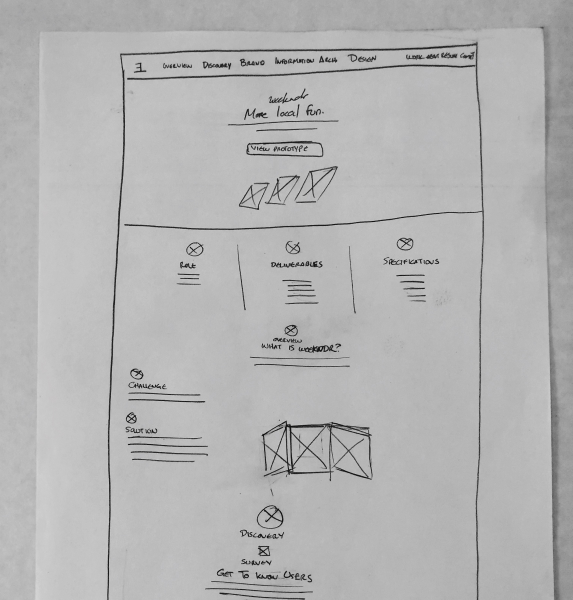 OVERVIEW DISCOVERY BRAND INFORMATION ARCH DESIGN WORK
weekndr
More local fun.
VIEW PROTOTYPE
ROLE DELIVERABLES SPECIFICATIONS
OVERVIEW
WHAT IS WEEKNDR?
CHALLENGE
SOLUTION
DISCOVERY
SURVEY
GET TO KNOW USERS